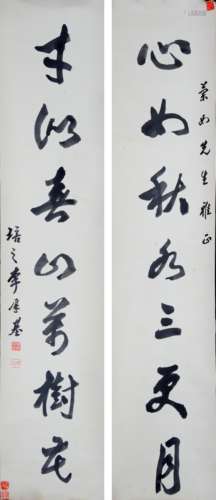 心如秋水三更月
蘭如先生雅正
才似春山萬樹花
培之李厚基